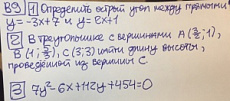 ВЗ 1 Определить острый угол между прямыми
y = -3x+7 и y = 2x+1
2 В треугольнике с вершинами A(3/2; 1),
B(1; 5/3), C(3;3) найти длину высоты,
проведенной из вершины C.
3 7y² - 6x + 112y + 454 = 0